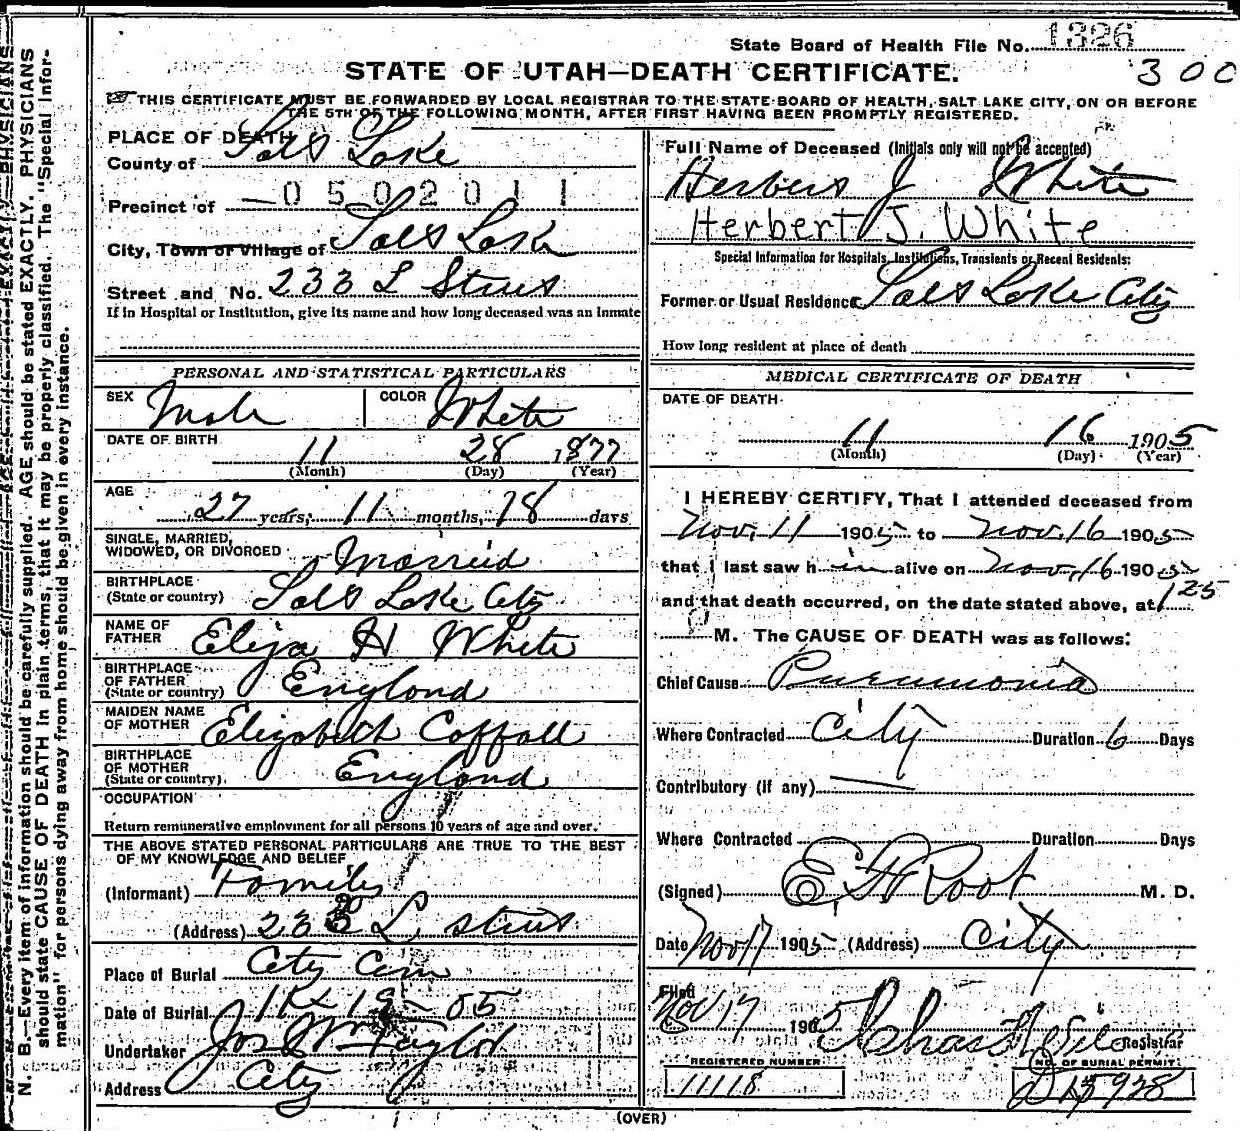 State Board of Health File No. 1326
300
STATE OF UTAH—DEATH CERTIFICATE.
THIS CERTIFICATE MUST BE FORWARDED BY LOCAL REGISTRAR TO THE STATE BOARD OF HEALTH, SALT LAKE CITY, ON OR BEFORE
THE 5TH OF THE FOLLOWING MONTH, AFTER FIRST HAVING BEEN PROMPTLY REGISTERED.
N. B.—Every item of information should be carefully supplied. AGE should be stated EXACTLY. PHYSICIANS
should state CAUSE OF DEATH in plain terms, that it may be properly classified. The "Special Infor-
mation" for persons dying away from home should be given in every instance.
PLACE OF DEATH
County of Salt Lake
Precinct of 0502011
City, Town or Village of Salt Lake
Street and No. 233 L Street
If in Hospital or Institution, give its name and how long deceased was an inmate
PERSONAL AND STATISTICAL PARTICULARS
SEX Male COLOR White
DATE OF BIRTH
11 28 1877
(Month) (Day) (Year)
AGE
27 years, 11 months, 18 days
SINGLE, MARRIED,
WIDOWED, OR DIVORCED Married
BIRTHPLACE
(State or country) Salt Lake City
NAME OF
FATHER Eliza H White
BIRTHPLACE
OF FATHER
(State or country) England
MAIDEN NAME
OF MOTHER Elizabeth Coffall
BIRTHPLACE
OF MOTHER
(State or country) England
OCCUPATION
Return remunerative employment for all persons 10 years of age and over.
THE ABOVE STATED PERSONAL PARTICULARS ARE TRUE TO THE BEST
OF MY KNOWLEDGE AND BELIEF
(Informant) Family
(Address) 233 L street
Place of Burial City Cem
Date of Burial 11 19 - 05
Undertaker Jos Wm Taylor
Address City
Full Name of Deceased (Initials only will not be accepted)
Herbert J White
Herbert J. White
Special Information for Hospitals, Institutions, Transients or Recent Residents:
Former or Usual Residence Salt Lake City
How long resident at place of death
MEDICAL CERTIFICATE OF DEATH
DATE OF DEATH
11 16 1905
(Month) (Day) (Year)
I HEREBY CERTIFY, That I attended deceased from
Nov. 11 1905 to Nov. 16 1905
that I last saw him alive on Nov. 16 1905
and that death occurred, on the date stated above, at 125
M. The CAUSE OF DEATH was as follows:
Chief Cause Pneumonia
Where Contracted City Duration 6 Days
Contributory (if any)
Where Contracted Duration Days
(Signed) E F Root M. D.
Date Nov 17 1905 (Address) City
Filed
Nov 17 1905 Chas Registrar
REGISTERED NUMBER
11118
NO. OF BURIAL PERMIT:
D 15928
(OVER)